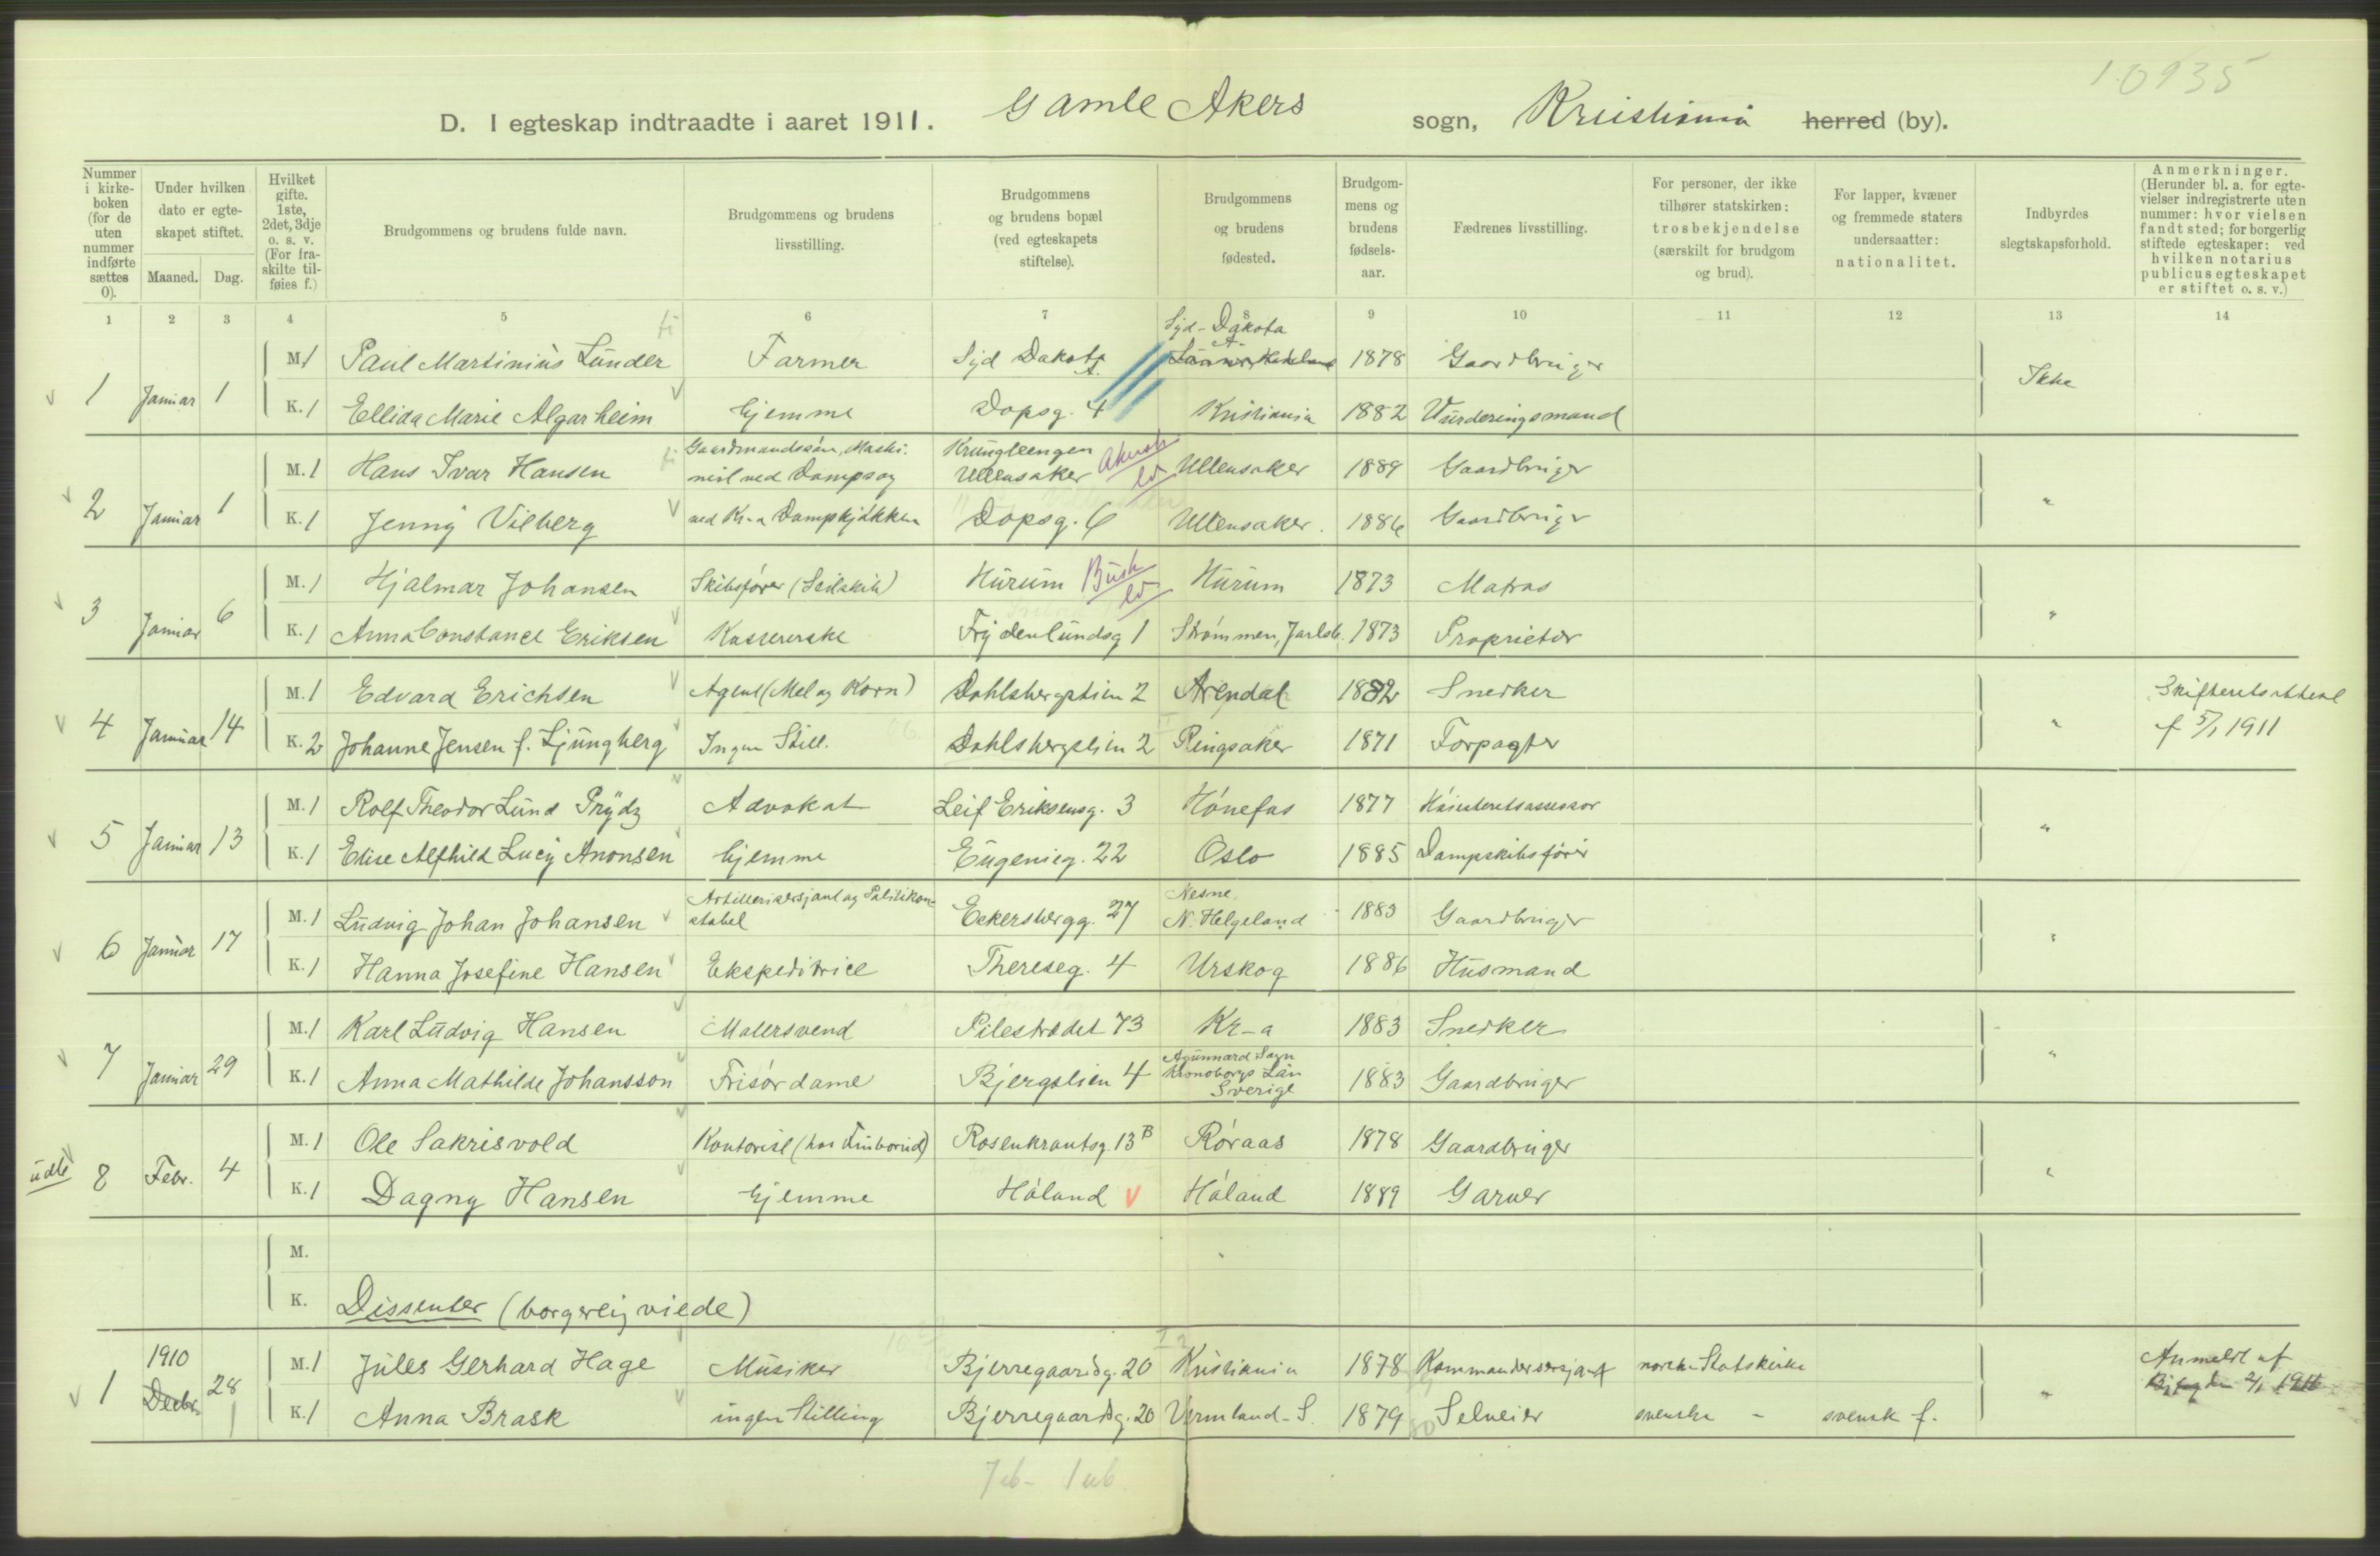 1.0935
D. I egteskap indtraadte i aaret 1911. Gamle Akers sogn, Kristiania herred (by).
Nummer i kirkeboken (for de uten nummer indførte sættes 0).
Under hvilken dato er egteskapet stiftet.
Maaned. Dag.
Hvilket gifte. 1ste, 2det, 3dje o. s. v. (For fraskilte tilføies f.)
Brudgommens og brudens fulde navn.
Brudgommens og brudens livsstilling.
Brudgommens og brudens bopæl (ved egteskapets stiftelse).
Brudgommens og brudens fødested.
Brudgommens og brudens fødselsaar.
Fædrenes livsstilling.
For personer, der ikke tilhører statskirken: trosbekjendelse (særskilt for brudgom og brud).
For lapper, kvæner og fremmede staters undersaatter: nationalitet.
Indbyrdes slegtskapsforhold.
Anmerkninger. (Herunder bl. a. for egtevielser indregistrerte uten nummer: hvor vielsen fandt sted; for borgerlig stiftede egteskaper: ved hvilken notarius publicus egteskapet er stiftet o. s. v.)
1 2 3 4 5 6 7 8 9 10 11 12 13 14
1 Januar 1 M. 1 Paul Martinius Lunder Farmer Syd Dakota A. Syd-Dakota A. 1878 Gaardbruger Ikke
K. 1 Ellida Marie Algarheim hjemme Dopsg. 4 Kristiania 1882 Vurderingsmand
2 Januar 1 M. 1 Hans Ivar Hansen Gaardmandssøn, Maskinist ved Dampsag Krungleengen Ullensaker Akersh Ullensaker 1889 Gaardbruger "
K. 1 Jenny Vilberg ved Kr-a Dampkjøkken Dopsg. 6 Ullensaker. 1886 Gaardbruger
3 Januar 6 M. 1 Hjalmar Johansen Skibsfører (Seilskib) Hurum Busk Hurum 1873 Matros "
K. 1 Anna Constance Eriksen Kassererske Frydenlundsg 1 Strømmen, Jarlsb. 1873 Proprietær
4 Januar 14 M. 1 Edvard Erichsen Agent (Mel og Korn) Dahlsbergstien 2 Arendal 1882 Snedker " Skifteretsattest
K. 2 Johanne Jensen f. Ljungberg Ingen Still. Dahlsbergstien 2 Ringsaker 1871 Forpagter f 5/1 1911
5 Januar 13 M. 1 Rolf Theodor Lund Prydz Advokat Leif Eriksensg. 3 Hønefos 1877 Høiesteretsassessor "
K. 1 Elise Alfhild Lucy Anonsen hjemme Eugenieg. 22 Oslo 1885 Dampskibsfører
6 Januar 17 M. 1 Ludvig Johan Johansen Artillerisersjant og Politikonstabel Eckersbergg. 27 Nesne, N. Helgeland 1883 Gaardbruger "
K. 1 Hanna Josefine Hansen Ekspeditrice Thereseg. 4 Urskog 1886 Husmand
7 Januar 29 M. 1 Karl Ludvig Hansen Malersvend Pilestrædet 73 Kr-a 1883 Snedker "
K. 1 Anna Mathilde Johansson Frisørdame Bjergstien 4 Agunnard Sogn Kronobergs Län Sverige 1883 Gaardbruger
udb 8 Febr. 4 M. 1 Ole Sakrisvold Kontorist Rosenkrantsg. 13 B Røraas 1878 Gaardbruger "
K. 1 Dagny Hansen hjemme Høland Høland 1889 Garver
M.
K. Dissenter (borgerlig viede)
1 1910 Decbr. 28 M. 1 Jules Gerhard Hage Musiker Bjerregaardsg. 20 Kristiania 1878 Kommandersersjant norske Statskirke " Anmeldt af
K. 1 Anna Brask ingen Stilling Bjerregaardsg. 20 Vermland-S. 1879 Selveier svenske - svensk f. 2/1 1911
7 ib- 1 ub